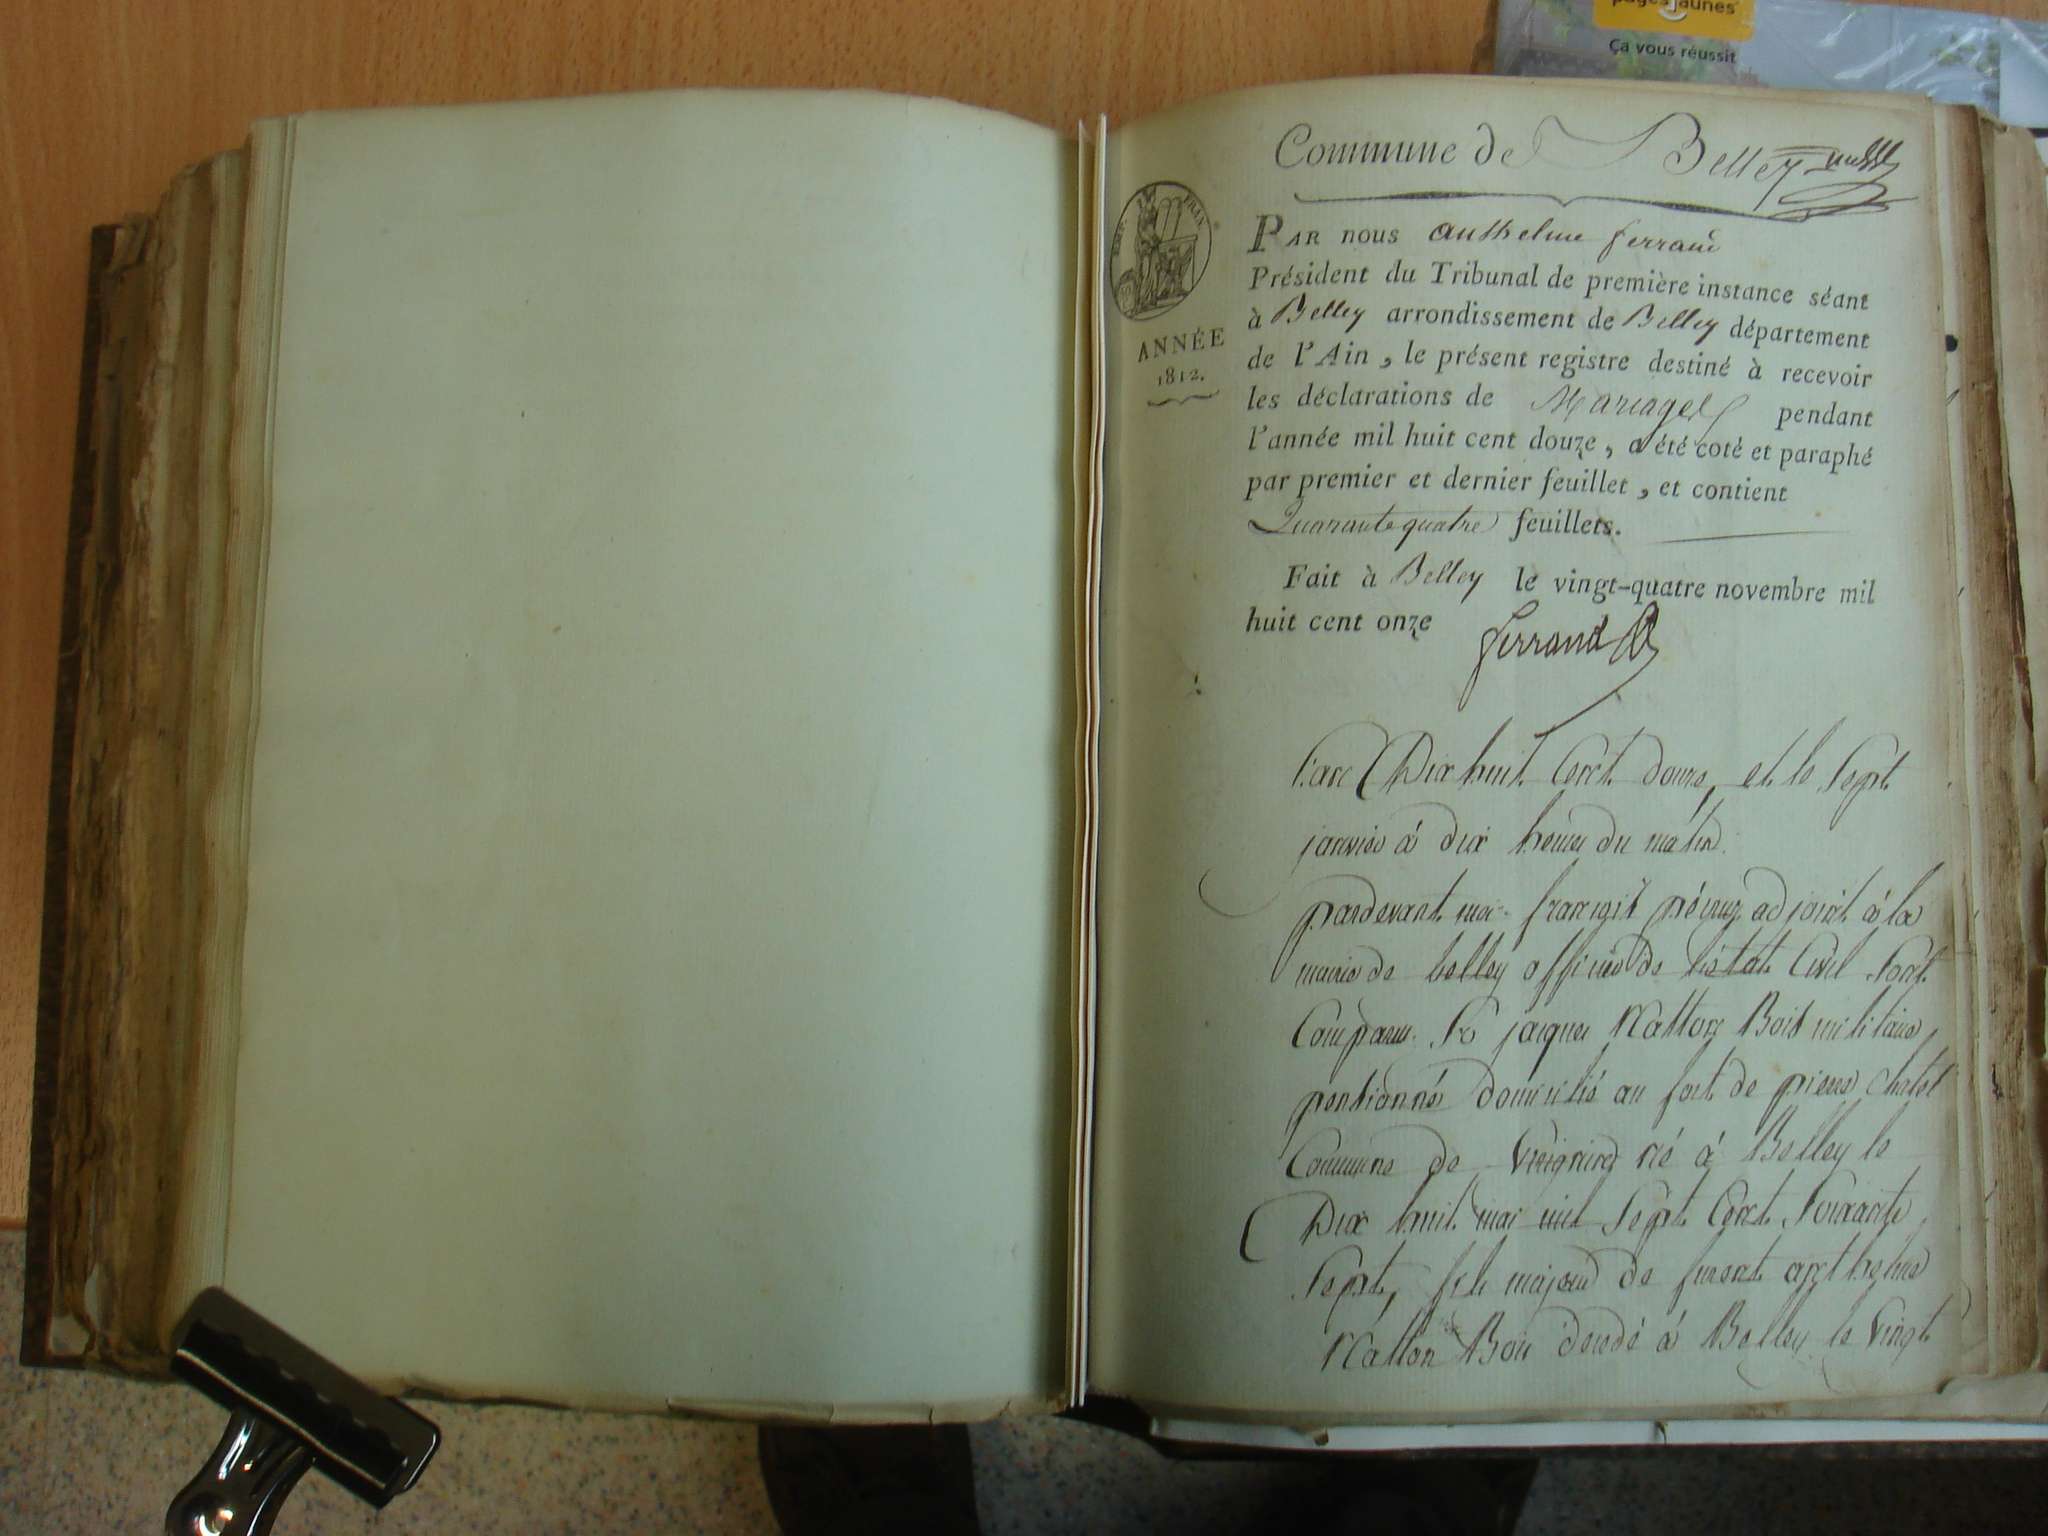 pagesjaunes
Ça vous réussit
Commune de Belley
EMP. FRAN.
ANNÉE
1812.
PAR nous anthelme ferrand
Président du Tribunal de première instance séant
à Belley arrondissement de Belley département
de l'Ain, le présent registre destiné à recevoir
les déclarations de Mariages pendant
l'année mil huit cent douze, a été coté et paraphé
par premier et dernier feuillet, et contient
Quarante quatre feuillets.
Fait à Belley le vingt-quatre novembre mil
huit cent onze
ferrand
L'an Dix huit Cent douze, et le Sept
janvier à dix heures du matin
pardevant moi françois adjoint à la
mairie de belley officier de l'état Civil Sont
Comparus Sr jacques Natton Bois militaire
pensionné domicilié au fort de pierre chatel
Commune de né à Belley le
Dix huit mai mil Sept Cent Soixante
Sept, fils majeur de furent anthelme
Natton Bois décédé à Belley le vingt